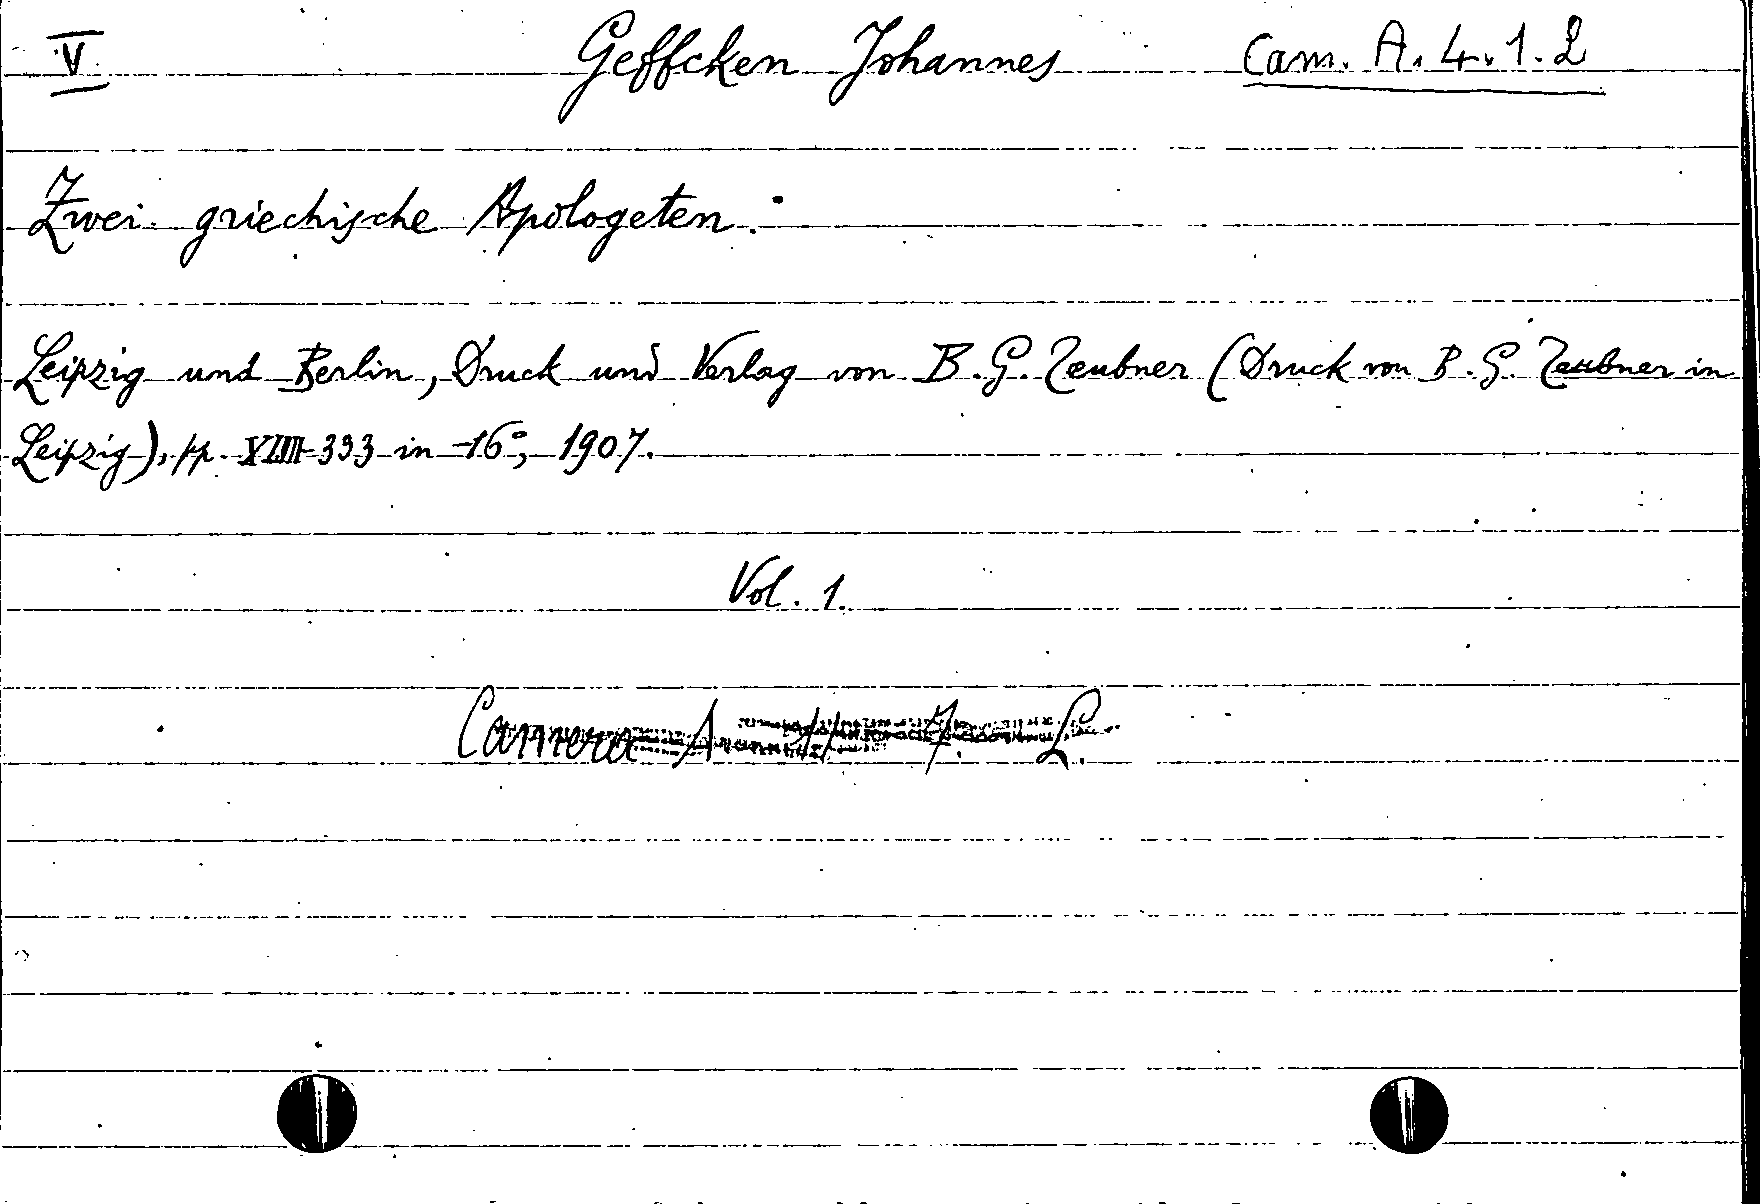 V Geffcken Johannes Cam. A. 4. 1. 2
Zwei griechische Apologeten.
Leipzig und Berlin, Druck und Verlag von B. G. Teubner (Druck von B. G. Teubner in
Leipzig), pp. 333 in -16°, 1907.
Vol. 1.
Camera A